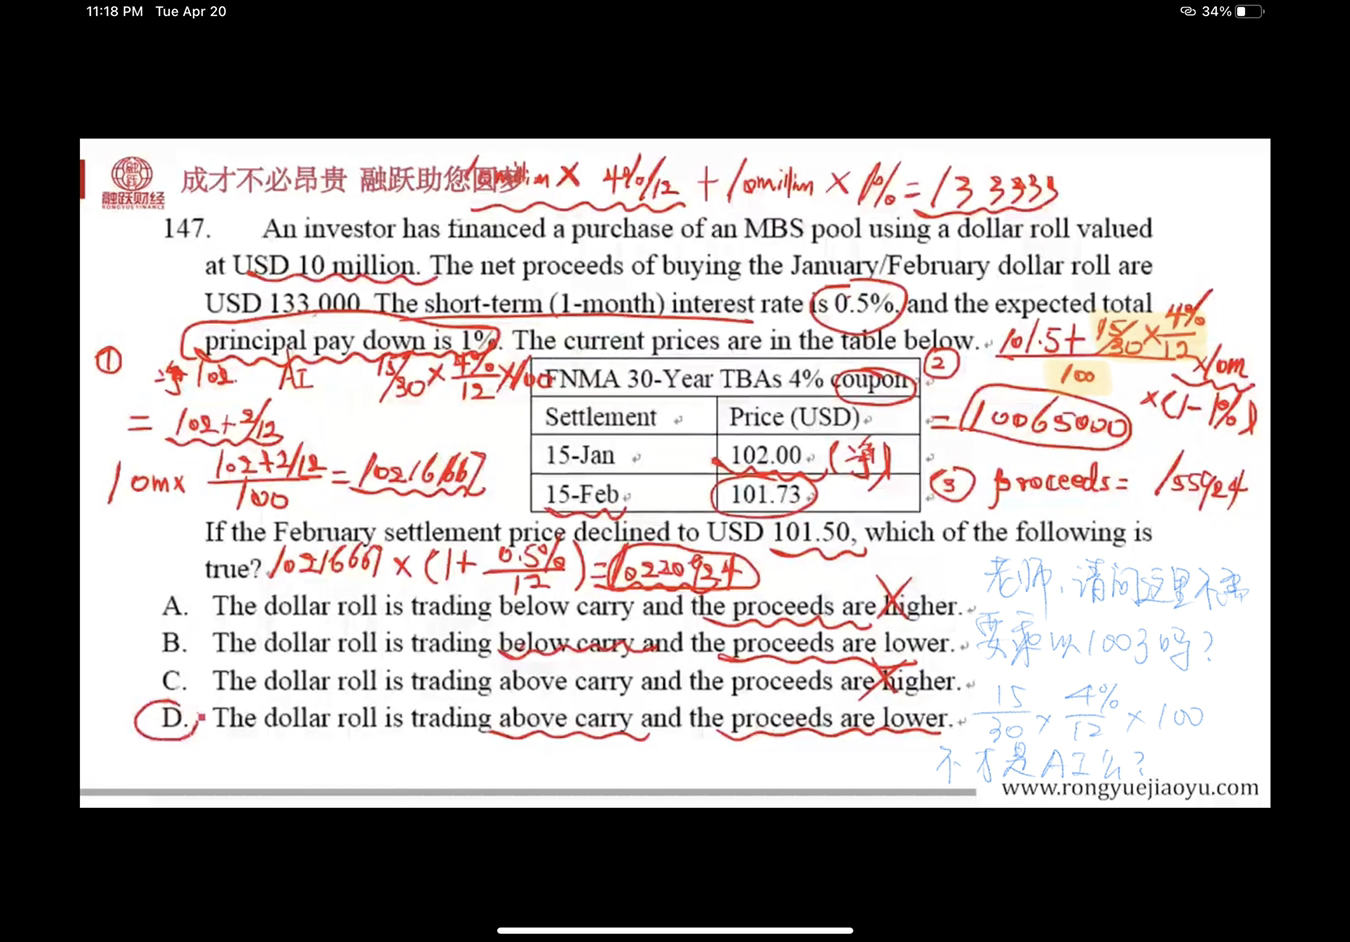 11:18 PM Tue Apr 20
34%
成才不必昂贵 融跃助您圆梦
融跃财经
RONGYUE FINANCE
million × 4%/12 + 10million × 1% = 133333
147. An investor has financed a purchase of an MBS pool using a dollar roll valued
at USD 10 million. The net proceeds of buying the January/February dollar roll are
USD 133,000. The short-term (1-month) interest rate is 0.5%, and the expected total
principal pay down is 1%. The current prices are in the table below.
① 净 102 AI 15/30 × 4%/12 × 100
= 102 + 2/12
10m× (102+2/12)/100 = 10216667
FNMA 30-Year TBAs 4% coupon
Settlement Price (USD)
15-Jan 102.00 (净)
15-Feb 101.73
② (101.5 + 15/30 × 4%/12)/100 × 10m
× (1-1%)
= 10065000
③ proceeds = 155924
If the February settlement price declined to USD 101.50, which of the following is
true? 10216667 × (1+ 0.5%/12) = 10220924
A. The dollar roll is trading below carry and the proceeds are higher.
B. The dollar roll is trading below carry and the proceeds are lower.
C. The dollar roll is trading above carry and the proceeds are higher.
D. The dollar roll is trading above carry and the proceeds are lower.
老师,请问这里不需
要乘以100了吗?
15/30 × 4%/12 × 100
不才是AI么?
www.rongyuejiaoyu.com